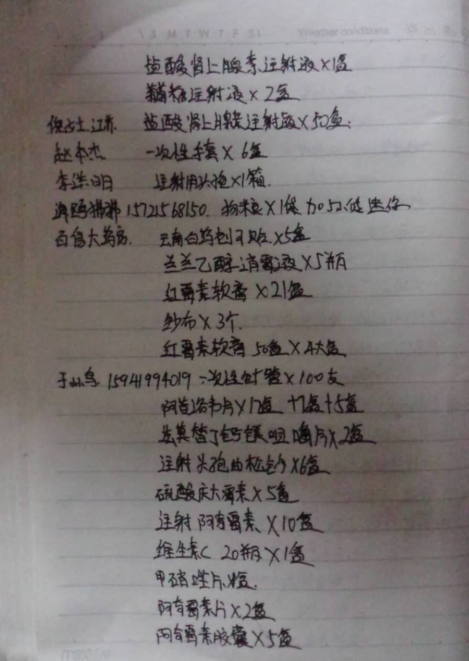 M T W T F S Weather conditions
盐酸肾上腺素注射液×1盒
葡糖注射液×2盒
江苏 盐酸肾上腺素注射液×50盒
赵本杰 一次性手套×6盒
李洪明 注射用头孢×1箱
海鸥 15721568150
百信大药房 云南白药创可贴×5盒
兰兰乙醇消毒液×5瓶
红霉素软膏×21盒
纱布×3个
红霉素软膏 50盒×4大盒
于小鸟 15941994019 一次性针管×100支
阿昔洛韦片×12盒 +7盒+5盒
法莫替丁钙镁咀嚼片×2盒
注射头孢曲松钠×6盒
硫酸庆大霉素×5盒
注射阿奇霉素×10盒
维生素C 20瓶×1盒
甲硝唑片
阿奇霉素片×2盒
阿奇霉素胶囊×5盒